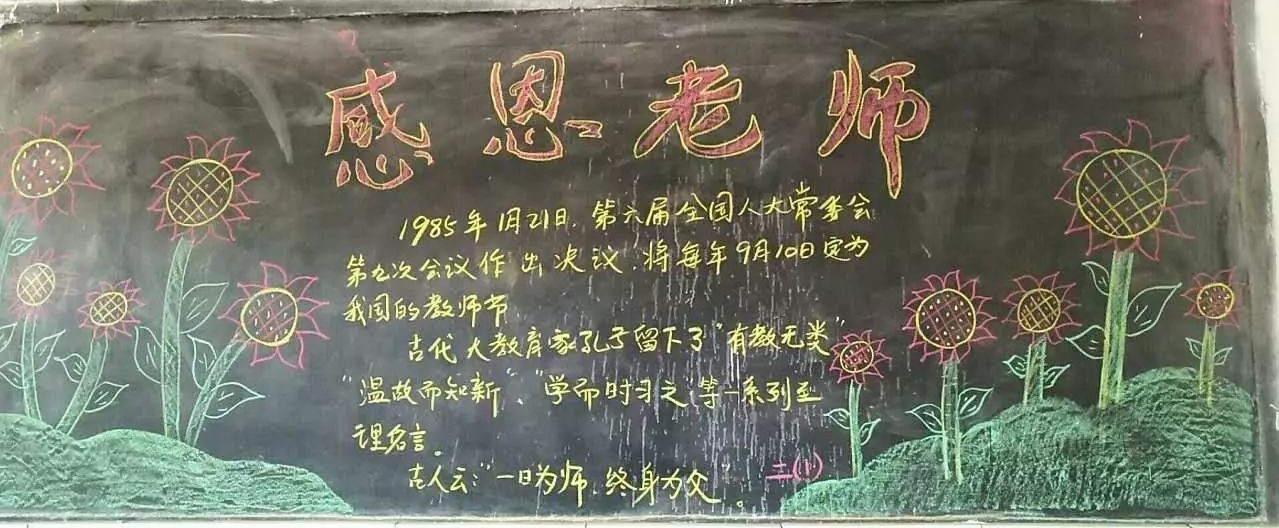 感恩老师
1985年1月21日,第六届全国人大常委会
第九次会议作出决议,将每年9月10日定为
我国的教师节
古代大教育家孔子留下了"有教无类"
"温故而知新"、"学而时习之等一系列至
理名言。
古人云:"一日为师,终身为父。
二(1)